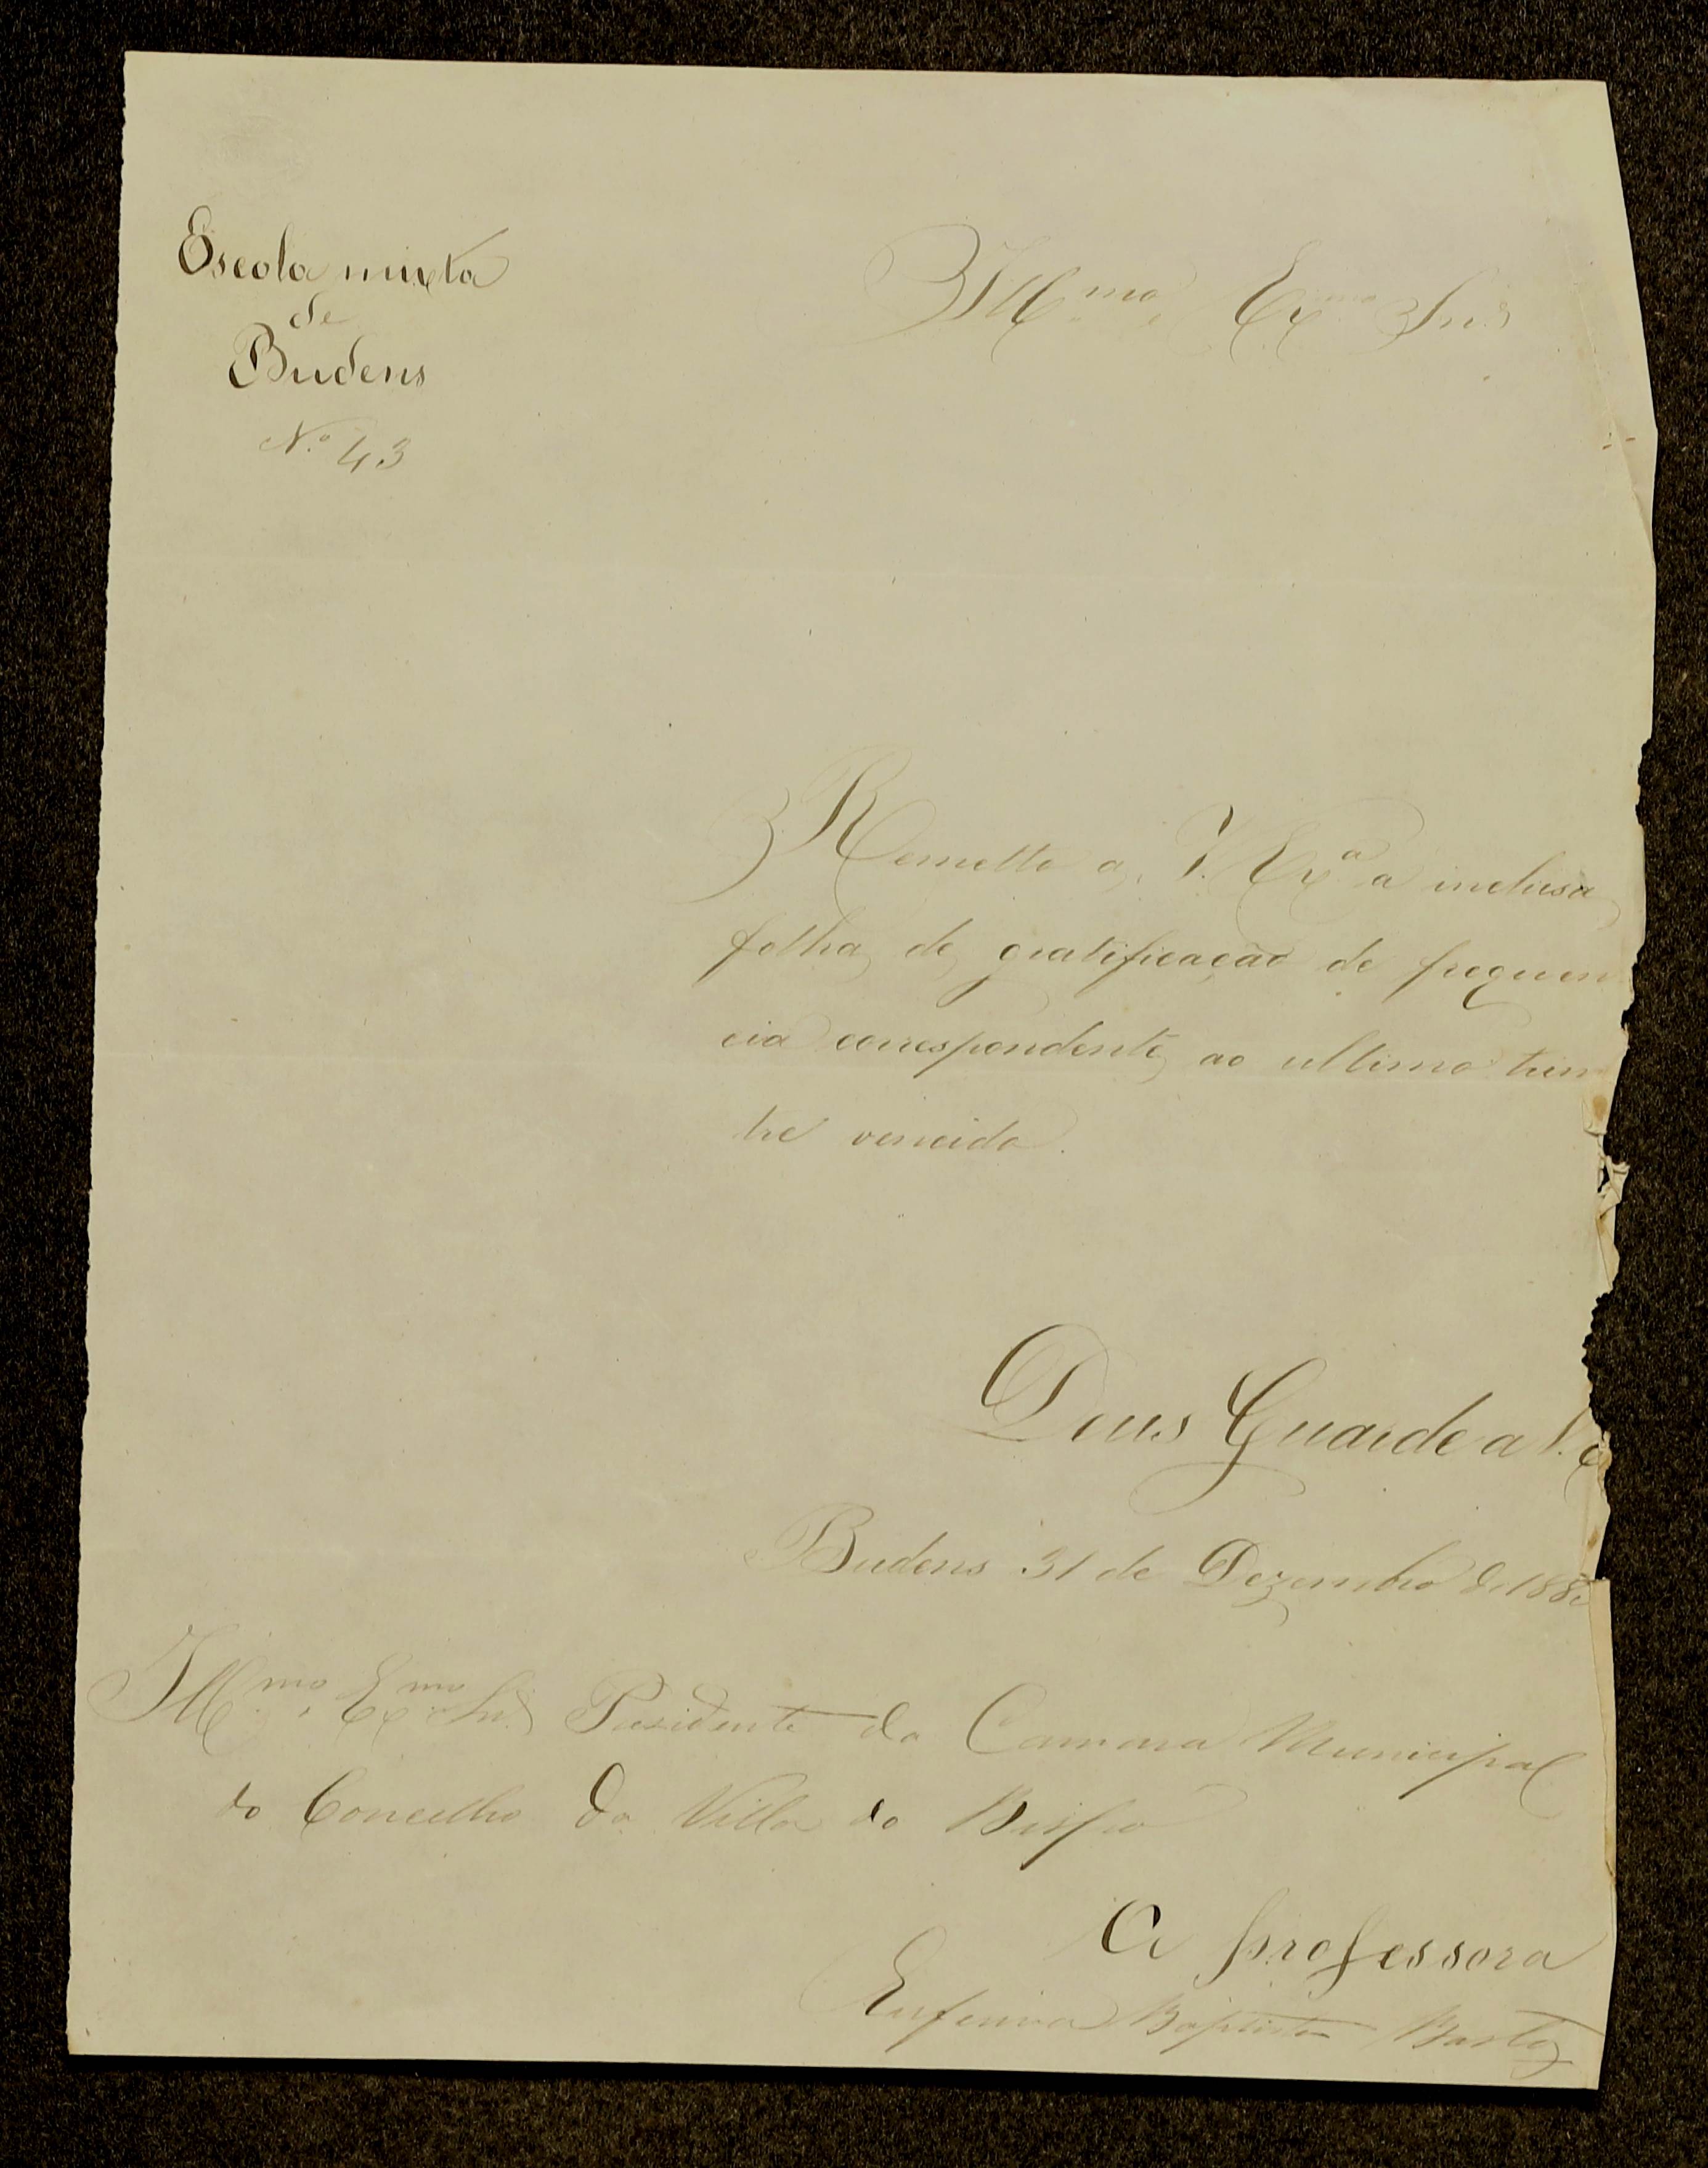 Escola mixta
de
Budens
N.º 43
Ill.mo e Ex.mo Snr.
Remetto a V. Ex.ª a inclusa
folha de gratificação de frequen
cia correspondente ao ultimo trim
tre vencido.
Deus Guarde a V. E
Budens 31 de Dezembro de 188
Ill.mo e Ex.mo Snr. Presidente da Camara Municipal
do Concelho da Villa do Bispo
A professora
Eufemia Baptista Basto